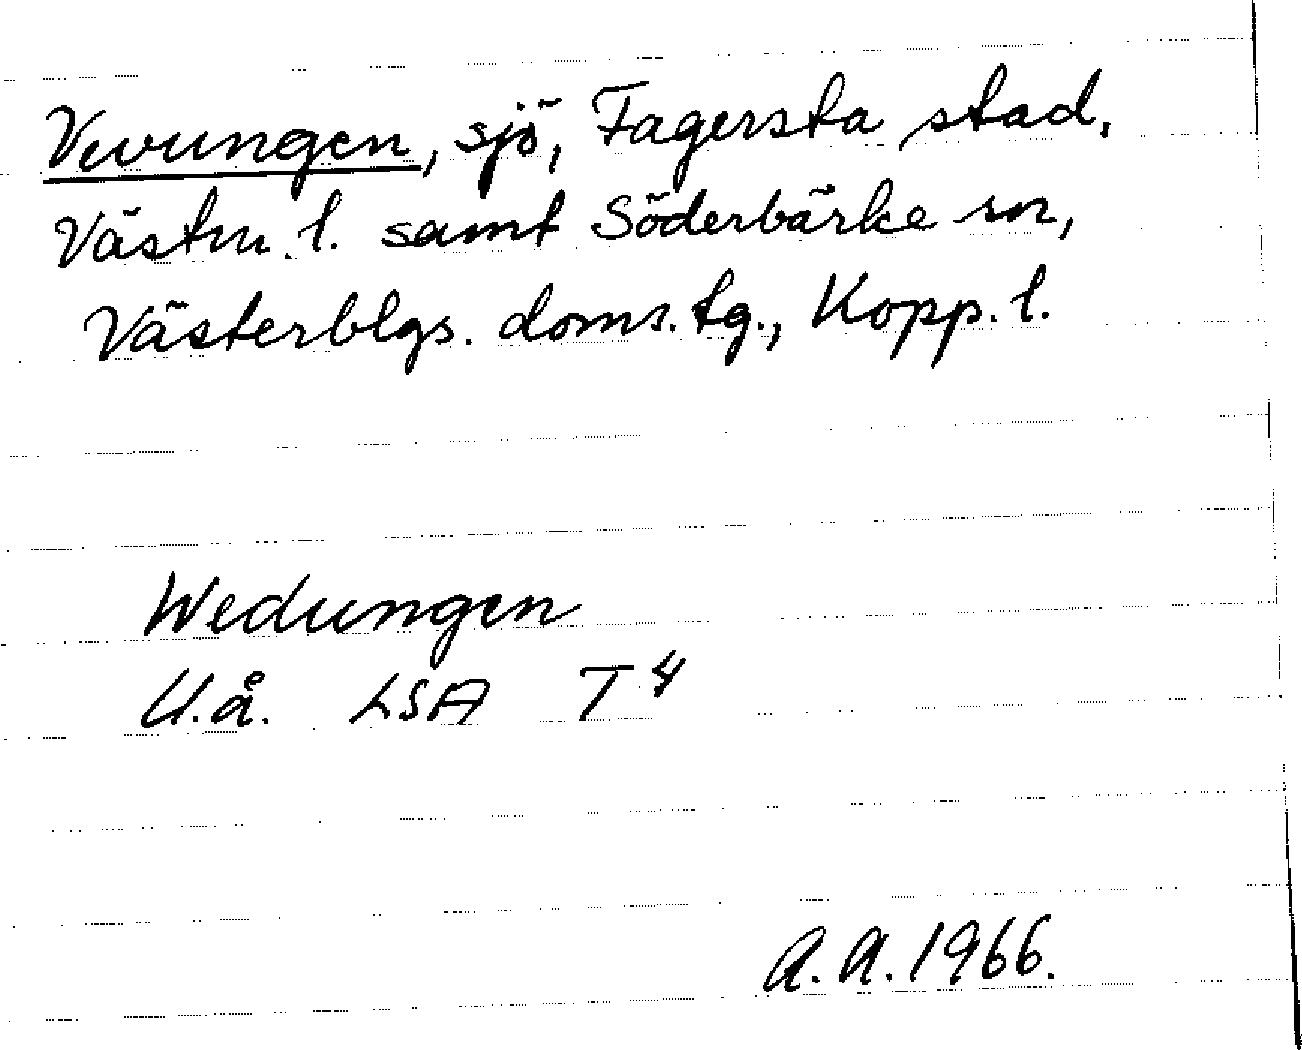 Vevungen, sjö, Fagersta stad,
Västm. l. samt Söderbärke sn,
Västerblgs. doms. tg., Kopp. l.
Wedungen
U.å. LSA T4
A.A. 1966.